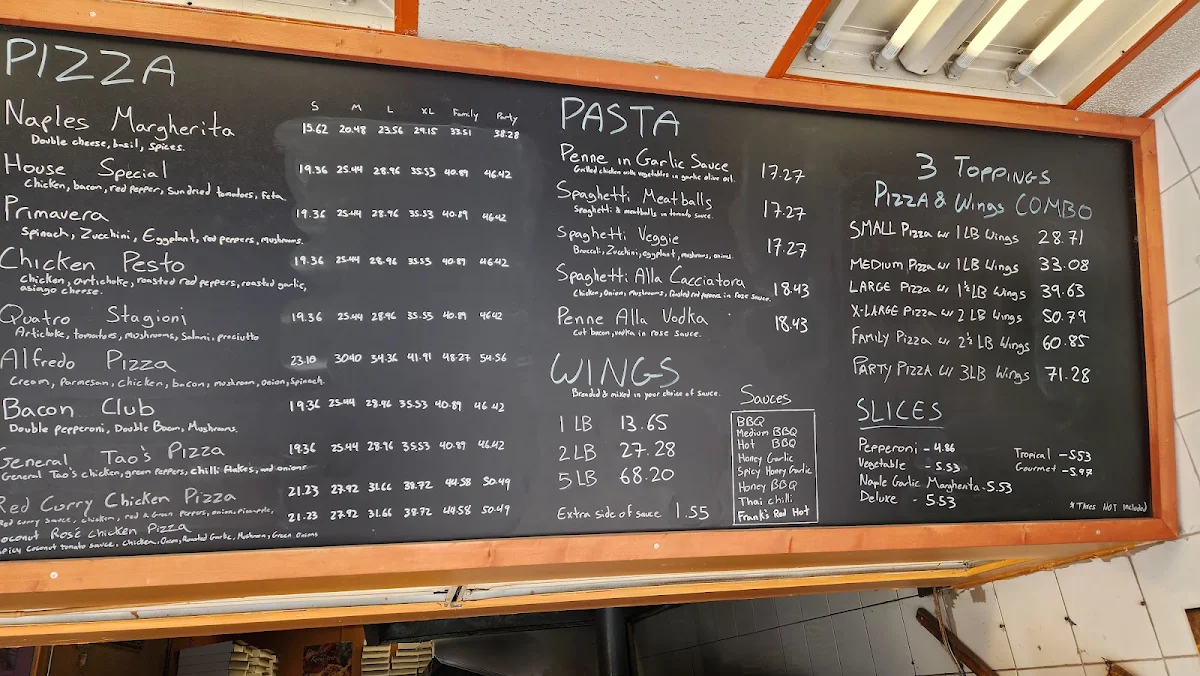 PIZZA
S M L XL Family Party
Naples Margherita 15.62 20.48 23.56 29.15 33.51 38.28
Double cheese, basil, spices.
House Special 19.36 25.44 28.96 35.53 40.89 46.42
Chicken, bacon, red pepper, sun dried tomatoes, feta.
Primavera 19.36 25.44 28.96 35.53 40.89 46.42
Spinach, Zucchini, Eggplant, red peppers, mushrooms.
Chicken Pesto 19.36 25.44 28.96 35.53 40.89 46.42
Chicken, artichoke, roasted red peppers, roasted garlic,
asiago cheese.
Quatro Stagioni 19.36 25.44 28.96 35.53 40.89 46.42
Artichoke, tomatoes, mushrooms, Salami, prociutto
Alfredo Pizza 23.10 30.40 34.36 41.91 48.27 54.56
Cream, Parmesan, Chicken, bacon, mushroom, onion, Spinach.
Bacon Club 19.36 25.44 28.96 35.53 40.89 46.42
Double pepperoni, Double Bacon, Mushrooms.
General Tao's Pizza 19.36 25.44 28.96 35.53 40.89 46.42
General Tao's chicken, green peppers, chilli flakes, and onions
Red Curry Chicken Pizza 21.23 27.92 31.66 38.72 44.58 50.49
Red Curry sauce, chicken, red & Green peppers, onion, pineapple,
Coconut Rosé chicken Pizza 21.23 27.92 31.66 38.72 44.58 50.49
Spicy Coconut tomato sauce, Chicken, Onion, Roasted Garlic, Mushroom, Green Onions
PASTA
Penne in Garlic Sauce 17.27
Grilled chicken with vegetables in garlic olive oil.
Spaghetti Meatballs 17.27
Spaghetti & meatballs in tomato sauce.
Spaghetti Veggie 17.27
Broccoli, Zucchini, eggplant, mushrooms, onions.
Spaghetti Alla Cacciatora 18.43
Chicken, Onion, Mushrooms, Roasted red peppers in rose sauce.
Penne Alla Vodka 18.43
Cut bacon, vodka in rose sauce.
WINGS
Breaded & mixed in your choice of sauce.
1 LB 13.65
2 LB 27.28
5 LB 68.20
Extra side of sauce 1.55
Sauces
BBQ
Medium BBQ
Hot BBQ
Honey Garlic
Spicy Honey Garlic
Honey BBQ
Thai chilli
Frank's Red Hot
3 Toppings
Pizza & Wings COMBO
SMALL Pizza w/ 1 LB Wings 28.71
MEDIUM Pizza w/ 1 LB Wings 33.08
LARGE Pizza w/ 1½ LB Wings 39.63
X-LARGE Pizza w/ 2 LB Wings 50.79
FAMILY Pizza w/ 2½ LB Wings 60.85
PARTY PIZZA w/ 3LB Wings 71.28
SLICES
Pepperoni - 4.86
Vegetable - 5.53
Naple Garlic Margherita - 5.53
Deluxe - 5.53
Tropical - 5.53
Gourmet - 5.97
* Taxes NOT Included